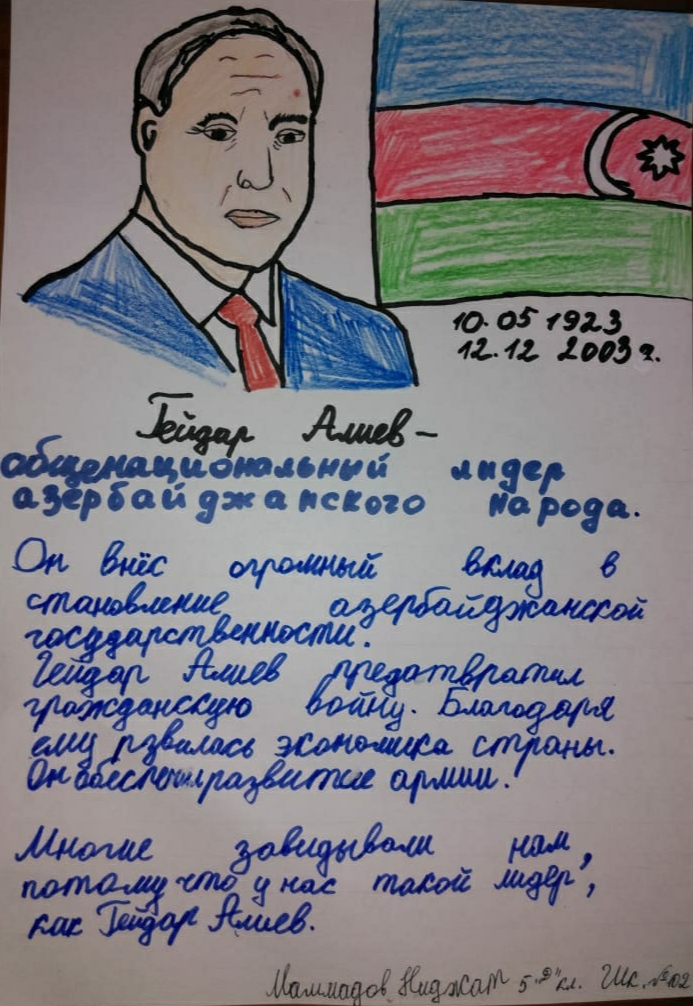 10.05 1923
12.12 2003 г.
Гейдар Алиев-
общенациональный лидер
азербайджанского народа.
Он внёс огромный вклад в
становление азербайджанской
государственности.
Гейдар Алиев предатвратил
гражданскую войну. Благодаря
ему рзвилась экономика страны.
Он обеспечил развитие армии.
Многие завидывали нам,
потому что у нас такой лидер,
как Гейдар Алиев.
Маммадов Ниджат 5 "Э" кл. Шк. №102